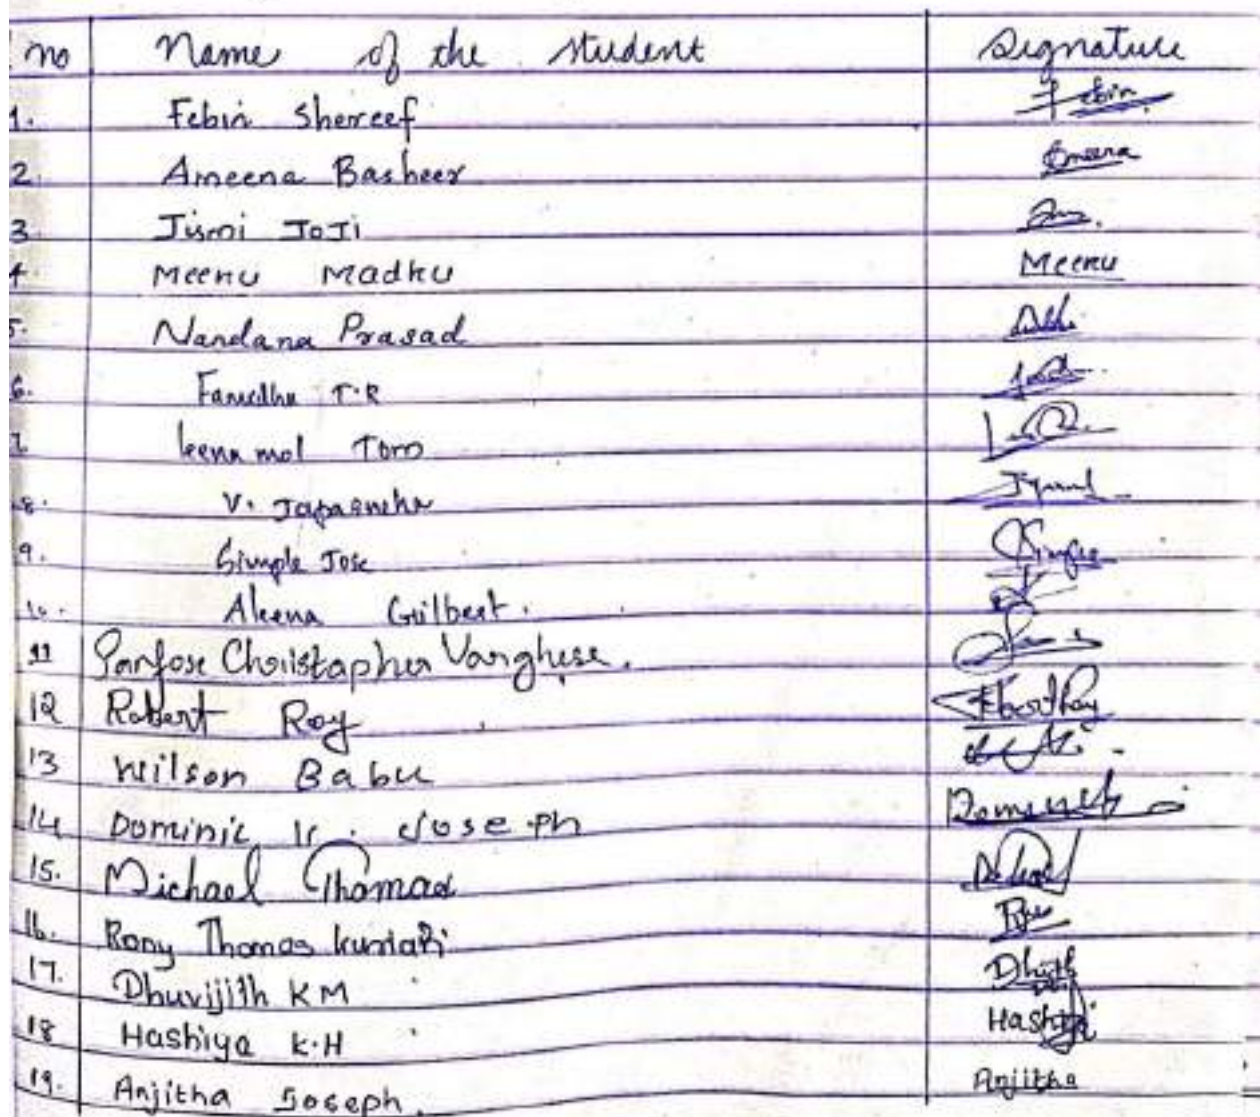 no Name of the student Signature
1. Febin Shereef Febin
2. Ameena Basheer Ameena
3. Jismi JoJi
4. Meenu Madhu Meenu
5. Nandana Prasad
6. T.R
7. leena mol Tom
8. V.
9. Simple Jose Simple
10. Aleena Gilbert.
11 Christapher Varghese.
12 Robert Roy
13 Wilson Babu
14 Dominic Joseph Dominic
15. Michael Thomas
16. Rony Thomas
17. Dhuvijith K M
18 Hashiya K.H Hashiya
19. Anjitha Joseph. Anjitha